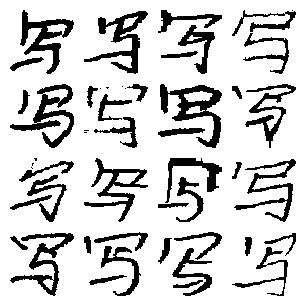 写写写写
写写写写
写写写写
写写写写